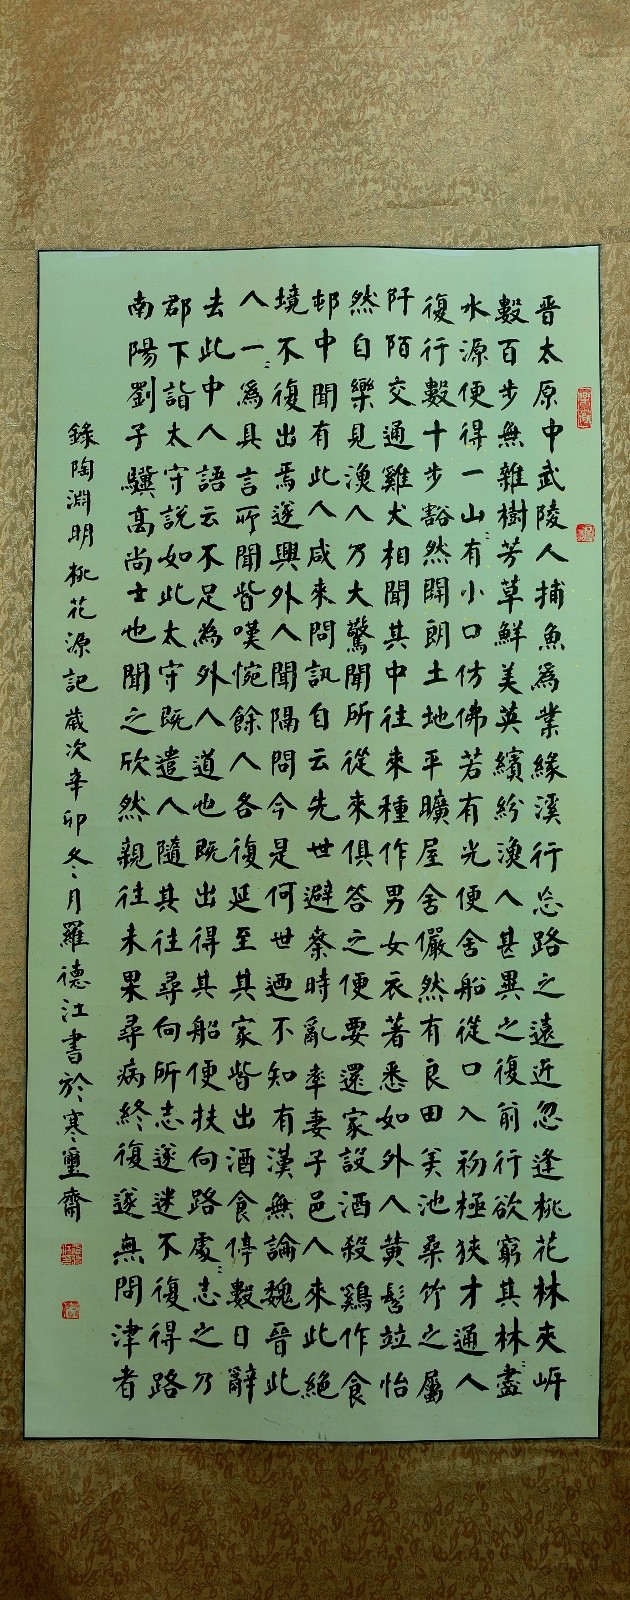 晋太原中武陵人捕魚為業緣溪行忘路之遠近忽逢桃花林夾岍
數百步無雜樹芳草鮮美英繽紛漁人甚異之復前行欲窮其林盡
水源便得一山有小口仿佛若有光便舍船從口入初極狹才通人
復行數十步豁然開朗土地平曠屋舍儼然有良田美池桑竹之屬
阡陌交通雞犬相聞其中往來種作男女衣著悉如外人黄髫竝怡
然自樂見漁人乃大驚聞所從來俱答之便要還家設酒殺鷄作食
邨中聞有此人咸來問訊自云先世避秦時亂率妻子邑人來此絕
境不復出焉遂與外人間隔問今是何世迺不知有漢無論魏晉此
人一為具言所聞皆嘆惋餘人各復延至其家皆出酒食停數日辭
去此中人語云不足為外人道也既出得其船便扶向路處志之乃
郡下詣太守說如此太守既遣人隨其往尋向所志遂迷不復得路
南陽劉子驥高尚士也聞之欣然親往未果尋病終復遂無問津者
錄陶淵明桃花源記歲次辛卯冬月羅德江書於寒璽齋